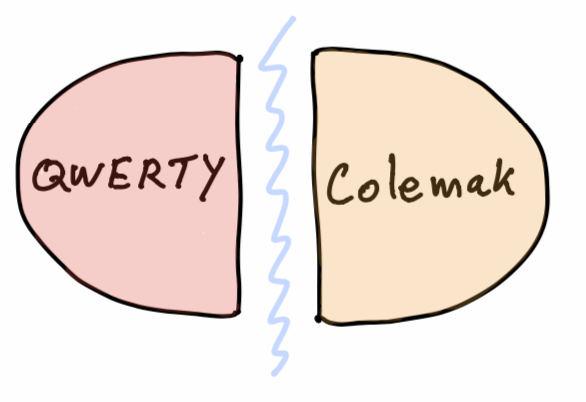 QWERTY
Colemak